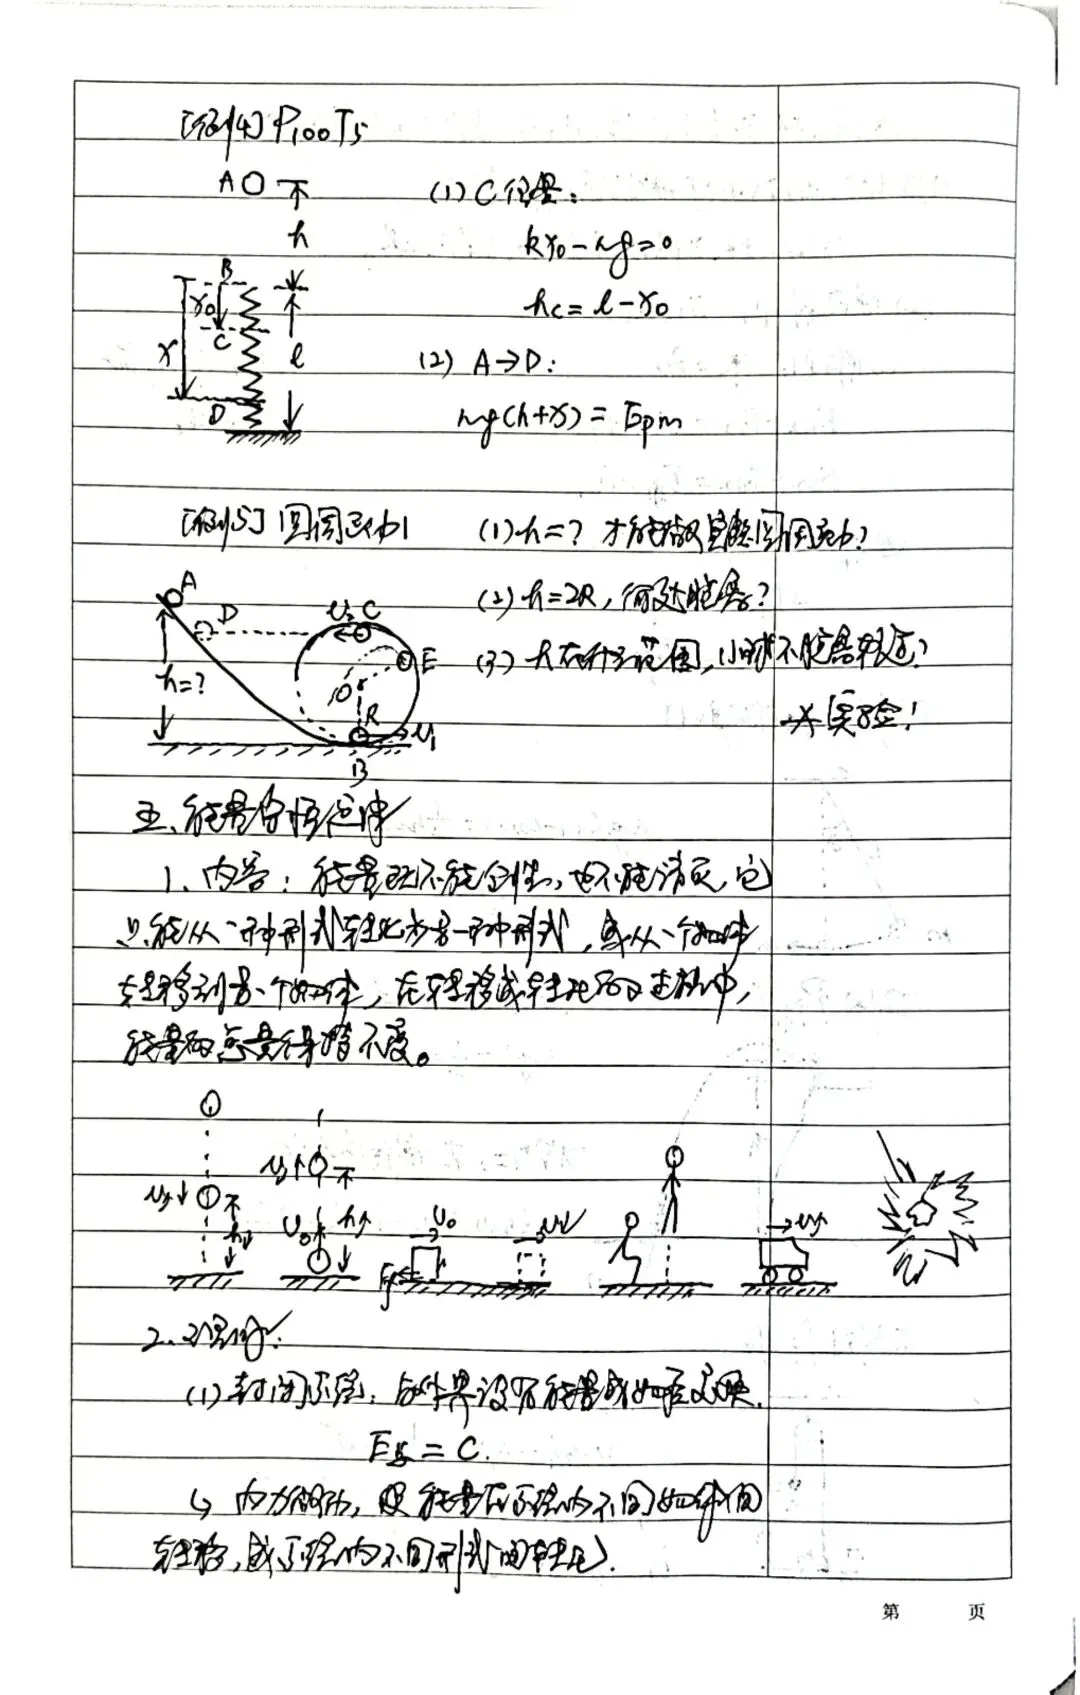 [例4] P100T5
A
h
(1) C位置:
kx₀-mg=0
B
x₀
C
x
l
D
hc=l-x₀
(2) A→D:
mg(h+x)=Epm
[例5] 圆周运动
(1) h=? 才能做完整圆周运动?
(2) h=2R, 何处脱离?
(3) h在什么范围, 小球不脱离轨道?
实验!
A
D
v₂ C
E
h=?
O
R
v₁
B
五、能量守恒定律
1、内容: 能量既不能创生, 也不能消灭, 它
只能从一种形式转化为另一种形式, 或从一个物体
转移到另一个物体, 在转移或转化的过程中,
能量的总量保持不变。
v↑↓
h↓
v↓↑
v₀
h↑
v₀
Ff
v↓
v↑
2、理解:
(1) 封闭系统: 与外界没有能量或物质交换.
E总=C.
↳ 内力做功, 使能量在系统内不同物体间
转移, 或系统内不同形式间转化.
第 页